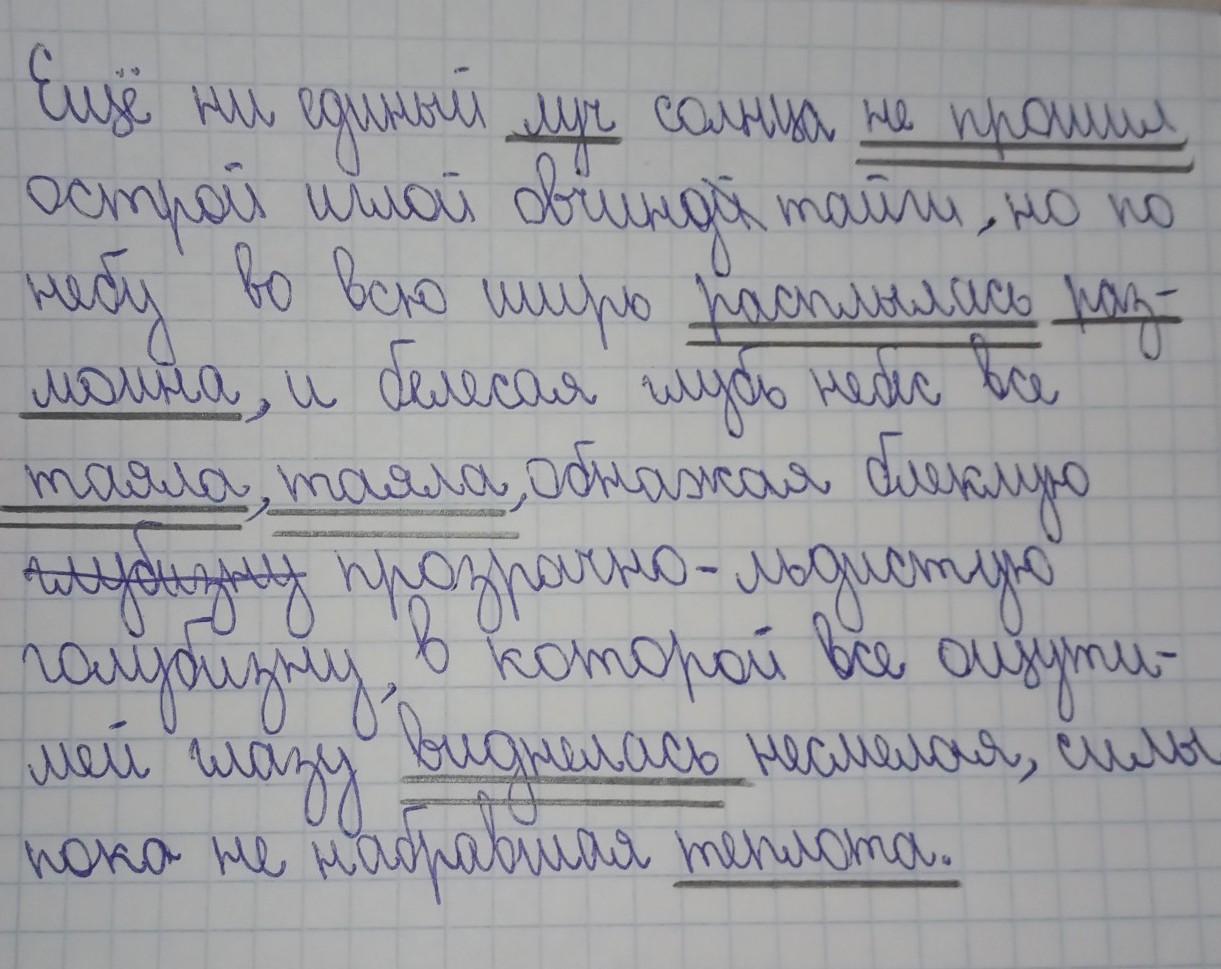 Ещё ни единый луч солнца не прошил
острой иглой овчиной тайги, но по
небу во всю ширь расплылась раз-
моина, и белесая глубь небес все
таяла, таяла, обнажая блеклую
глубизну прозрачно-льдистую
голубизну, в которой все ощути-
мей глазу виднелась несмелая, силы
пока не набравшая теплота.